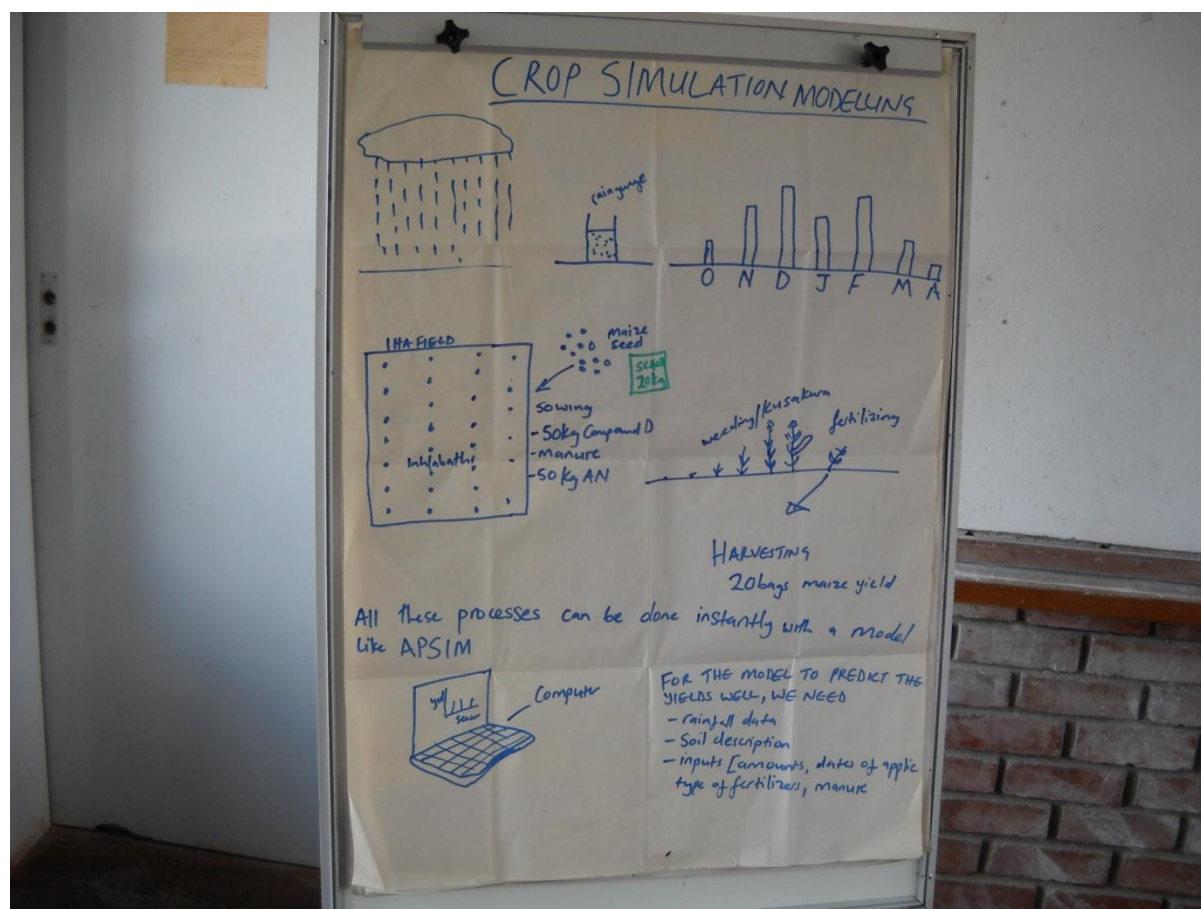 CROP SIMULATION MODELLING
raingauge
O N D J F M A
1HA FIELD
maize
seed
seed
20kg
sowing
- 50kg Compound D
- manure
- 50 kg AN
Inhlabathi
weeding/kusakura
fertilizing
HARVESTING
20bags maize yield
All these processes can be done instantly with a model
like APSIM
Computer
FOR THE MODEL TO PREDICT THE
YIELDS WELL, WE NEED
- rainfall data
- Soil description
- inputs [amounts, dates of applic
type of fertilizers, manure